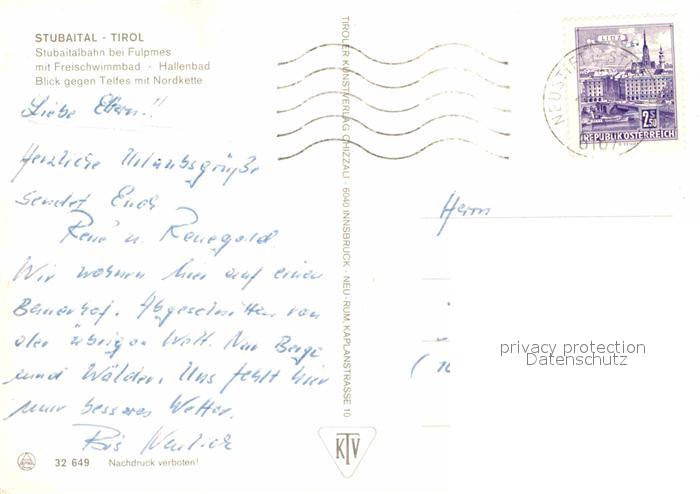 STUBAITAL - TIROL
Stubaitalbahn bei Fulpmes
mit Freischwimmbad - Hallenbad
Blick gegen Telfes mit Nordkette
Liebe Eltern!!
Herzliche Urlaubsgrüße
sendet Euch
René u. Renegold
Wir wohnen hier auf einen
Bauernhof. Abgeschnitten von
der übrigen Welt. Nur Berge
und Wälder. Uns fehlt hier
nur besseres Wetter.
Bis
32 649 Nachdruck verboten!
TIROLER KUNSTVERLAG CHIZZALI · 6040 INNSBRUCK - NEU-RUM, KAPLANSTRASSE 10
KTV
LINZ
2.50
REPUBLIK ÖSTERREICH
NEUSTI
6167
Herrn
privacy protection
Datenschutz